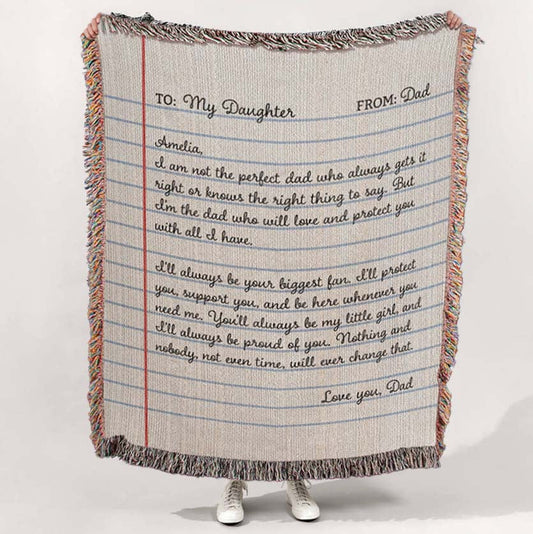 TO: My Daughter FROM: Dad
Amelia,
I am not the perfect dad who always gets it
right or knows the right thing to say. But
I'm the dad who will love and protect you
with all I have.
I'll always be your biggest fan. I'll protect
you, support you, and be here whenever you
need me. You'll always be my little girl, and
I'll always be proud of you. Nothing and
nobody, not even time, will ever change that.
Love you, Dad